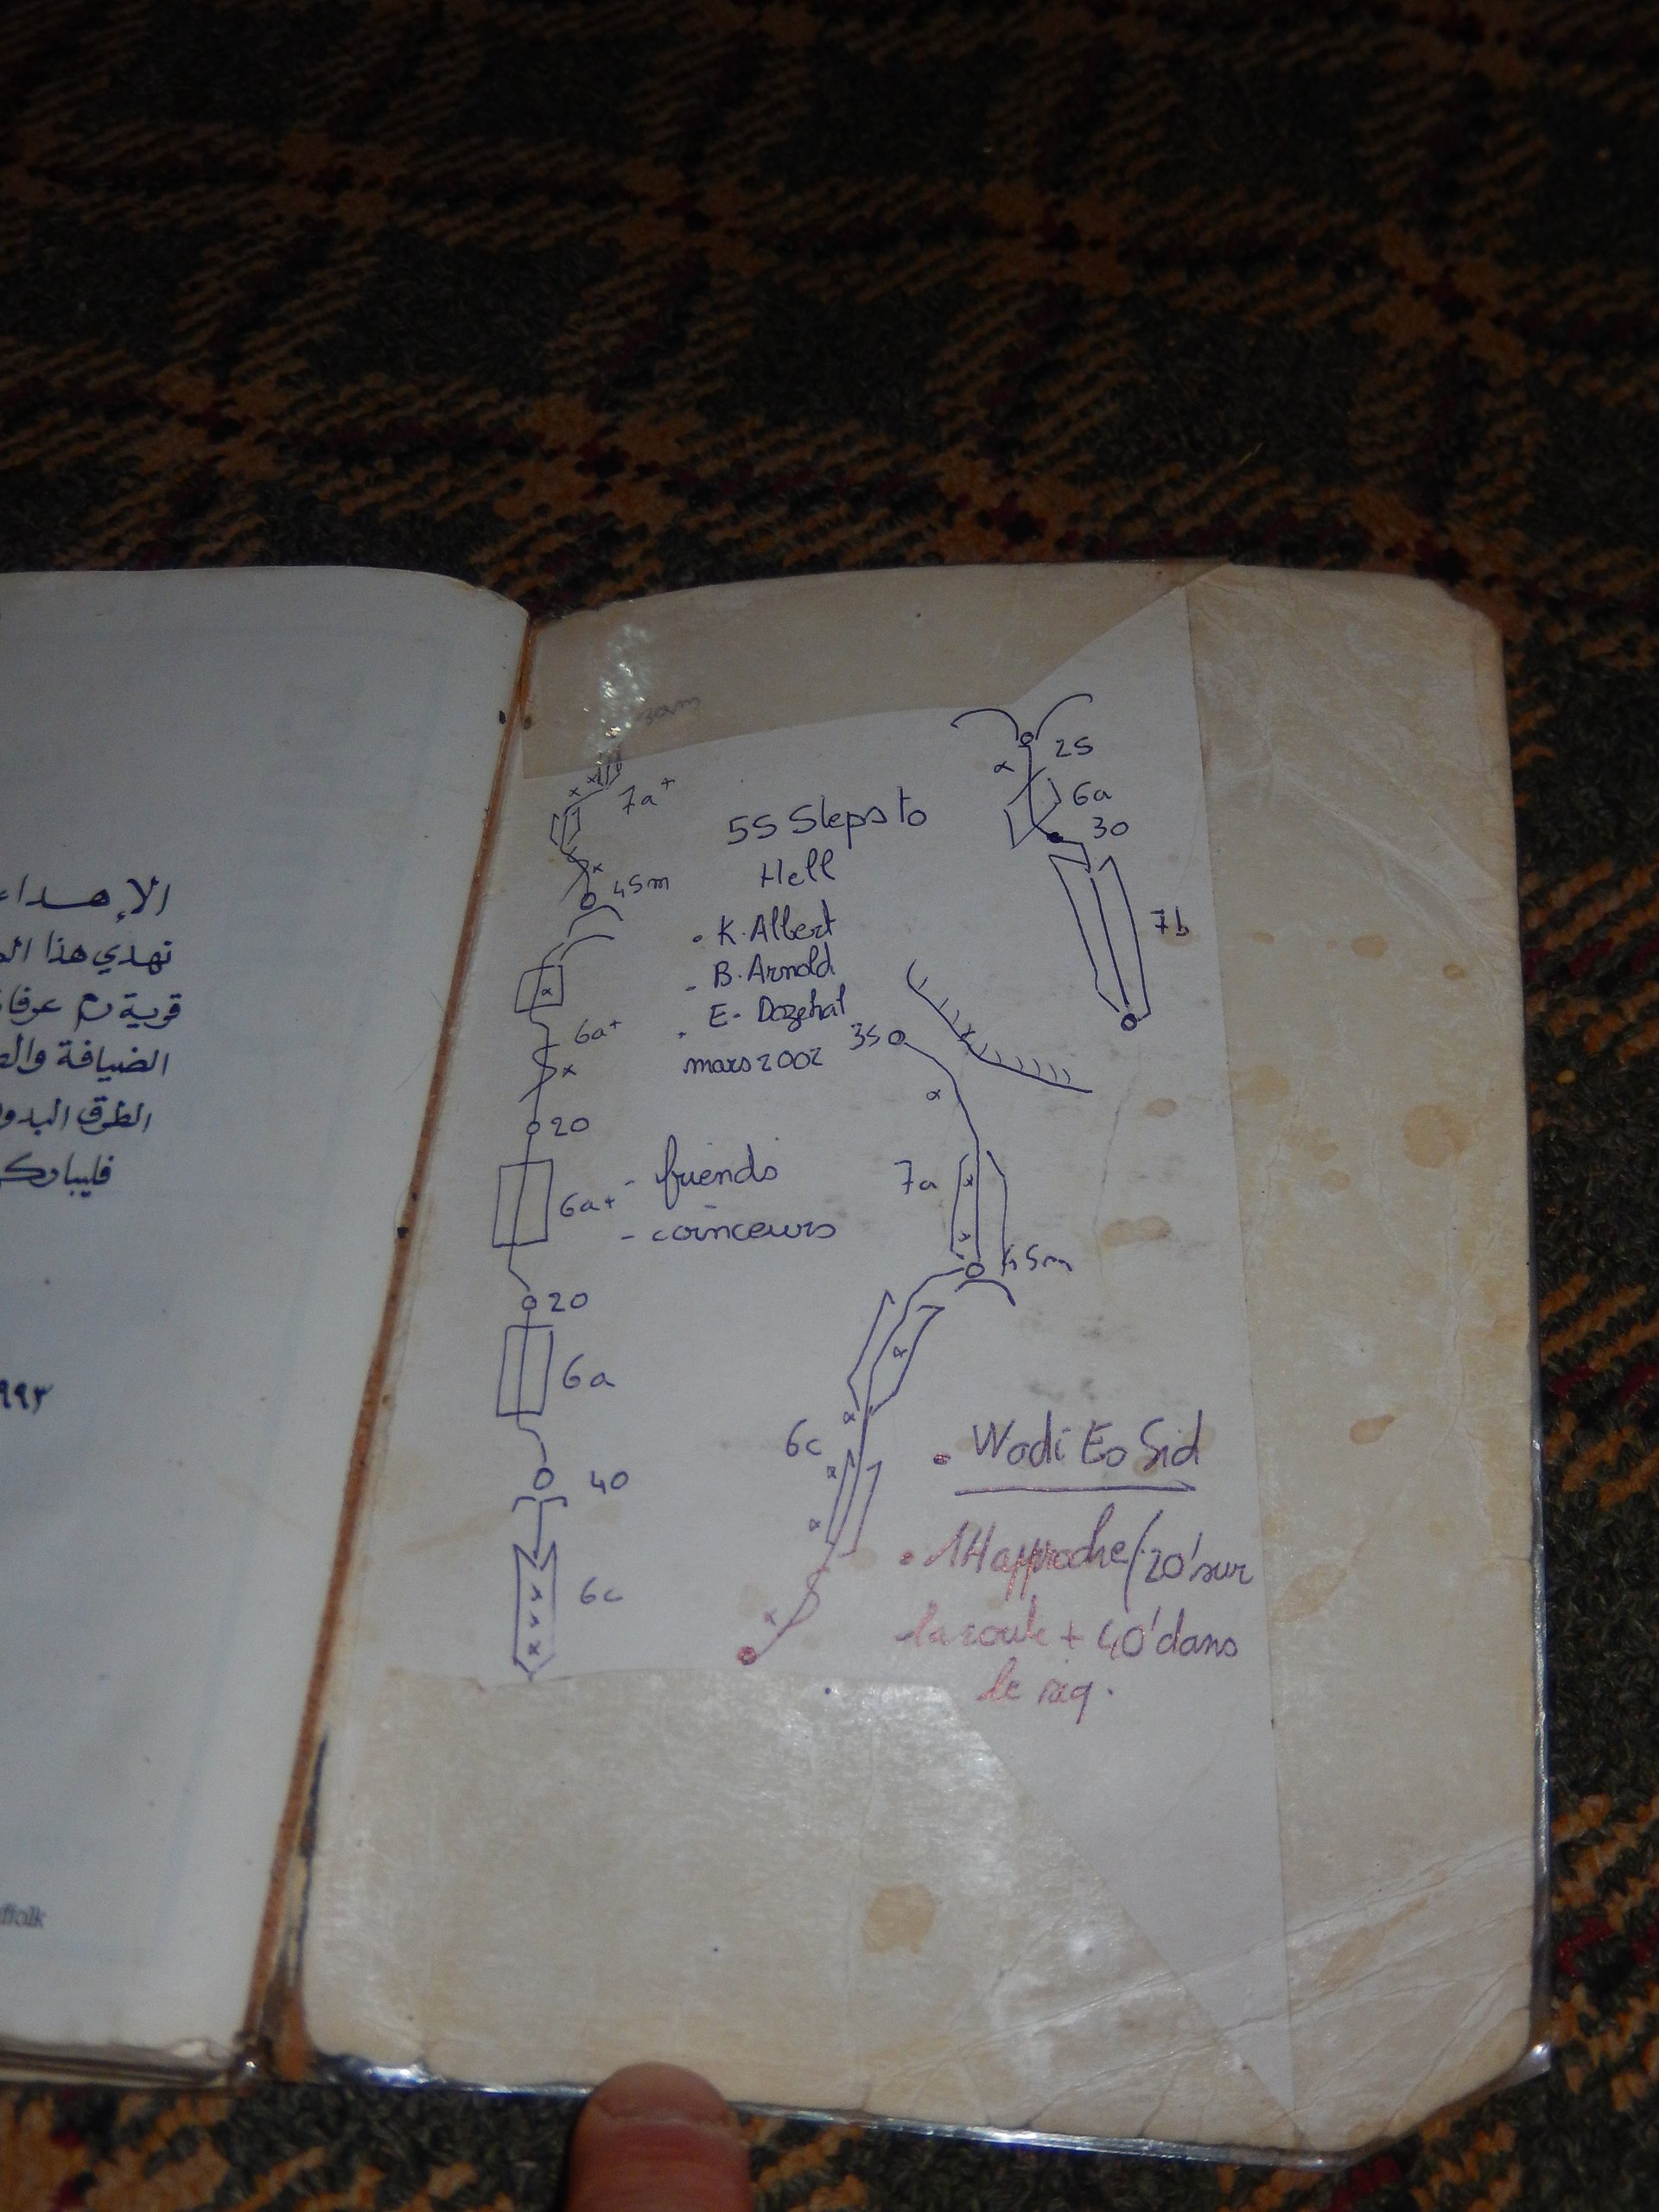 الإهداء
تهدي هذا
قرية رم
الضيافة
الطرق البدو
٩٩٣
ffolk
30m
7a+
45m
6a+
20
6a+
20
6a
40
6c
55 Steps to
Hell
• K. Albert
- B. Arnold
. E. Dozehal
mars 2002
- friends
- coinceurs
25
6a
30
7b
35
7a
45m
6c
• Wadi Es Sid
• 1H approche (20' sur
la route + 40' dans
le siq.